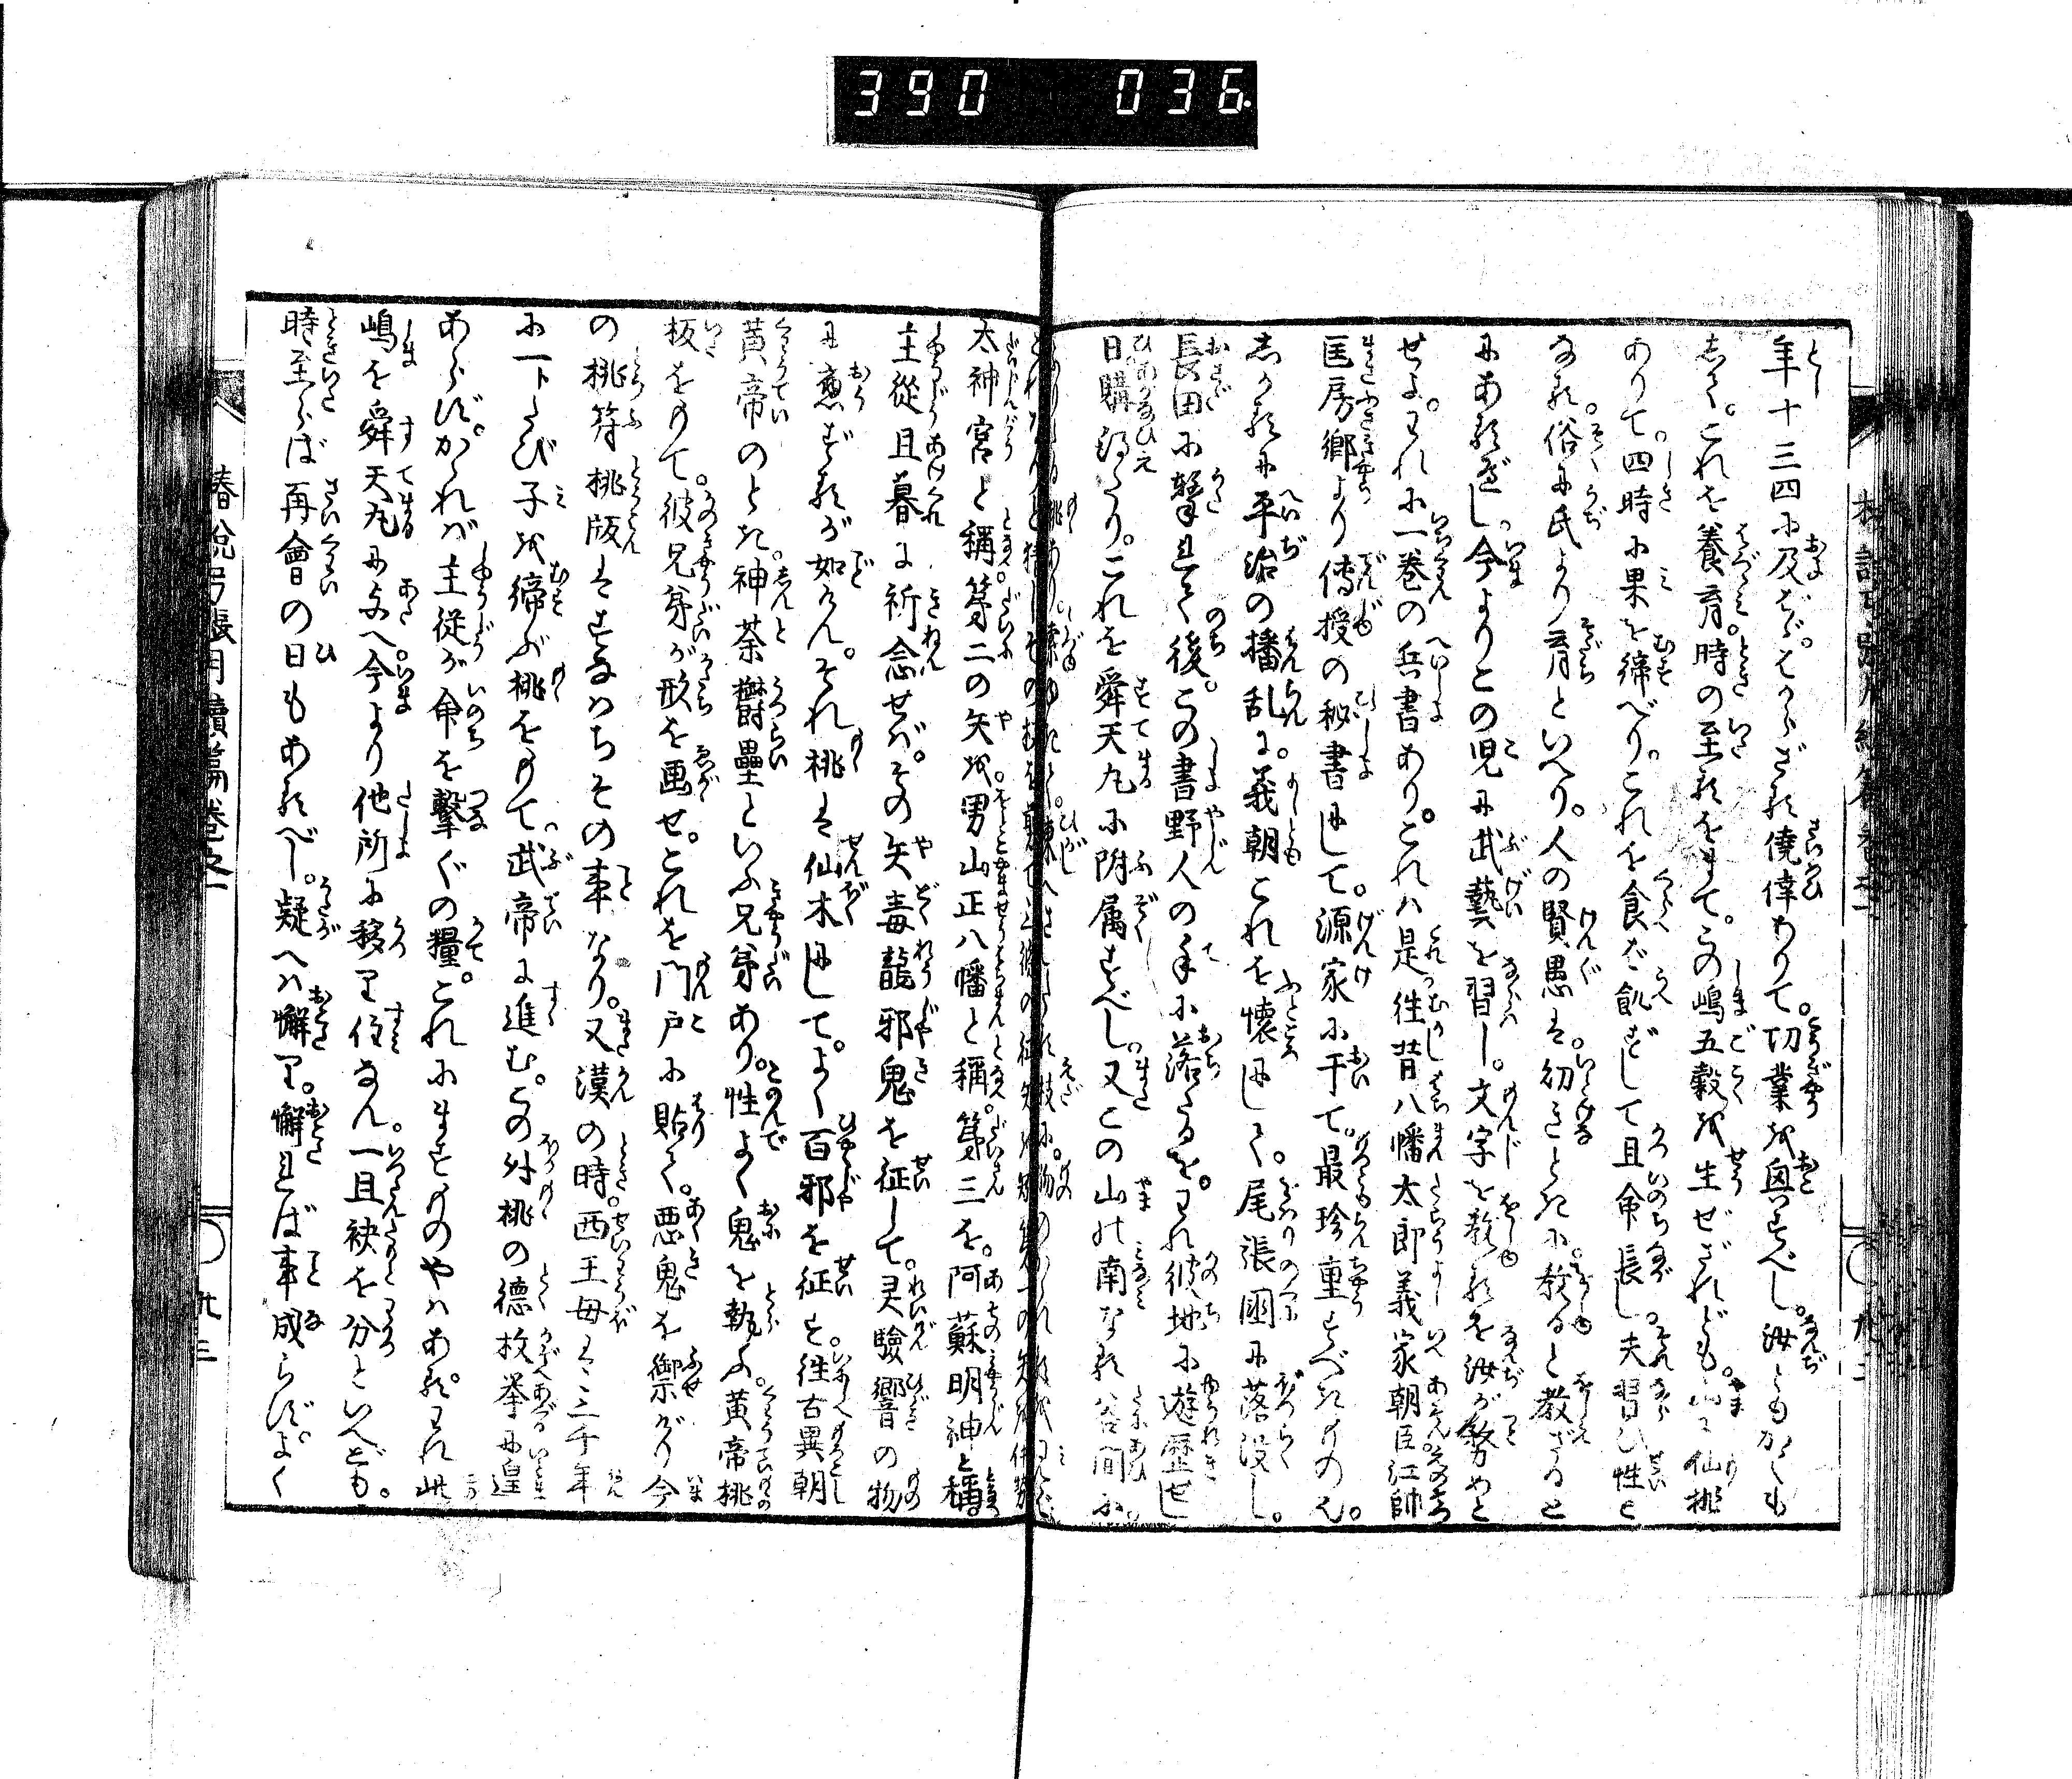 390 036
年十三四に及ばゞ。はからざる僥倖ありて。切業を奐すべし。汝ともかくも
して。これを養育。時の至るをまて。この嶋五穀を生ぜざれども。山に仙桃
ありて。四時に果を締べり。これを食ば飢ずして且命長し。夫習ひ性と
なる。俗に氏より育といへり。人の賢愚は。幼きときに。教ると教ざると
にあるべし。今よりこの児に武藝を習し。文字を教るを汝が務めと
せよ。われに一巻の兵書あり。これハ是往昔八幡太郎義家朝臣江帥
匡房卿より傳授の秘書にして。源家に于て。最珍重すべきもの也。
しかるに平治の播乱に。義朝これを懐にして。尾張國に落没し。
長田に撃れて後。この書野人の手に落たるを。われ彼地に遊歴せし
日購得たり。これを舜天丸に附属すべし。又この山の南なる谷間に。
太神宮と稱。第二の矢を。男山正八幡と稱。第三を。阿蘇明神と稱。
主從旦暮に祈念せバ。その矢毒龍邪鬼を征して。灵驗響の物
に應ずるが如けん。それ桃は仙木にして。よく百邪を征す。往古異朝
黄帝のとき。神荼欝壘といふ兄弟あり。性よく鬼を執ふ。黄帝桃
板をもて。彼兄弟が形を画せ。これを門戸に貼て。悪鬼を禦がり今
の桃符桃版はすなはちその事なり。又漢の時。西王母は三千年
に一トたび子を締ぶ桃をもて。武帝に進む。この外桃の德枚挙に遑
あらず。かゝれバ主從が命を繋ぐの糧。これにますものやハある。われ此
嶋を舜天丸に与へ。今より他所に移り住なん。一旦袂を分といへども。
時至らば再會の日もあるべし。疑へハ懈り。懈れば事成らず。よく
椿説弓張月續篇卷之一
廿三